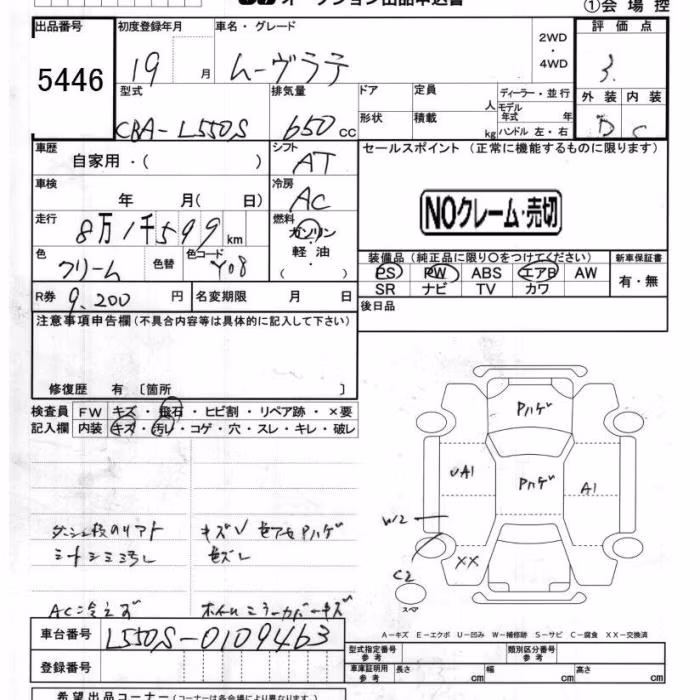 オークション出品申込書
①会場控
出品番号
5446
初度登録年月
19 月
車名・グレード
ムーヴラテ
2WD
・
4WD
評価点
3.
型式
CBA-L550S
排気量
650 cc
ドア
定員
人
ディーラー・並行
外装 内装
D C
形状
積載
kg
モデル年式 年
ハンドル 左・右
車歴
自家用・( )
シフト
AT
セールスポイント (正常に機能するものに限ります)
車検
年 月( 日)
冷房
AC
NOクレーム・売切
走行
8万1千599km
燃料
ガソリン
・
軽油
( )
色
クリーム
色替
色コード
Y08
装備品 (純正品に限り○をつけてください)
新車保証書
PS PW ABS エアB AW
SR ナビ TV カワ
有・無
R券
9,200 円
名変期限 月 日
後日品
注意事項申告欄 (不具合内容等は具体的に記入して下さい)
修復歴 有 〔箇所 〕
検査員
記入欄
FW キズ・飛石・ヒビ割・リペア跡・×要
内装 キズ・汚レ・コゲ・穴・スレ・キレ・破レ
Pハゲ
UA1
Pハゲ
A1
W2
XX
C2
スペア
キズV 色アセPハゲ
シートシミ汚レ
色ズレ
AC冷えず
ホイルミラーカバーキズ
A－キズ E－エクボ U－凹み W－補修跡 S－サビ C－腐食 XX－交換済
車台番号
L550S-0109463
登録番号
型式指定番号
参考
類別区分番号
参考
車庫証明用
参考
長さ cm
幅 cm
高さ cm
希望出品コーナー (コーナーは各会場により異なります)